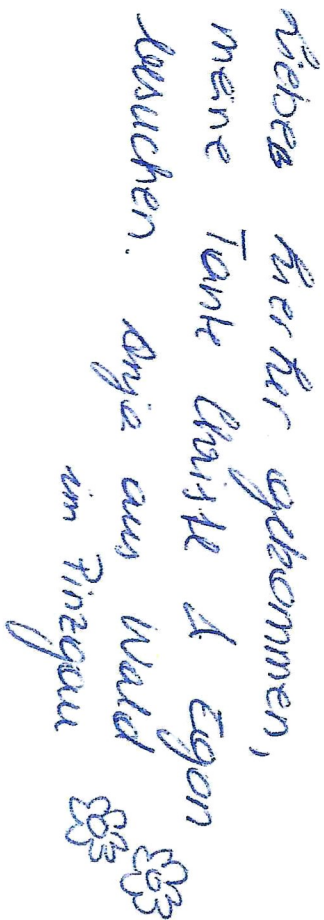 lieber hier her gekommen,
meine Tante Christl & Egon
besuchen. Anja aus Wald
im Pinzgau